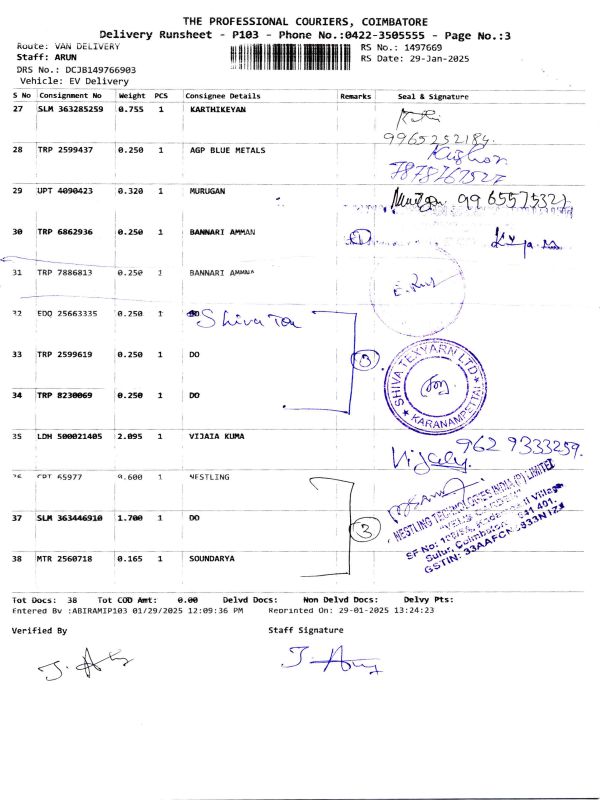 THE PROFESSIONAL COURIERS, COIMBATORE
Delivery Runsheet - P103 - Phone No.:0422-3505555 - Page No.:3
Route: VAN DELIVERY RS No.: 1497669
Staff: ARUN RS Date: 29-Jan-2025
DRS No.: DCJB149766903
Vehicle: EV Delivery
S No Consignment No Weight PCS Consignee Details Remarks Seal & Signature
27 SLM 363285259 0.755 1 KARTHIKEYAN
9965252184.
28 TRP 2599437 0.250 1 AGP BLUE METALS Kishor
7878767527
29 UPT 4090423 0.320 1 MURUGAN Murugan 9965575321
30 TRP 6862936 0.250 1 BANNARI AMMAN
31 TRP 7886813 0.250 1 BANNARI AMMNA
32 EDQ 25663335 0.250 1 Shiva Tex
33 TRP 2599619 0.250 1 DO 3
34 TRP 8230069 0.250 1 DO
SHIVA TEXYARN LTD
KARANAMPETTAI
35 LDH 500021405 2.095 1 VIJAIA KUMA 9629333259.
65977 1 NESTLING
37 SLM 363446910 1.700 1 DO 3
38 MTR 2560718 0.165 1 SOUNDARYA
NESTLING TECHNOLOGIES INDIA (P) LIMITED
SF No:
Sulur, Coimbatore 641 401.
GSTIN:
Tot Docs: 38 Tot COD Amt: 0.00 Delvd Docs: Non Delvd Docs: Delvy Pts:
Entered By :ABIRAMIP103 01/29/2025 12:09:36 PM Reprinted On: 29-01-2025 13:24:23
Verified By Staff Signature